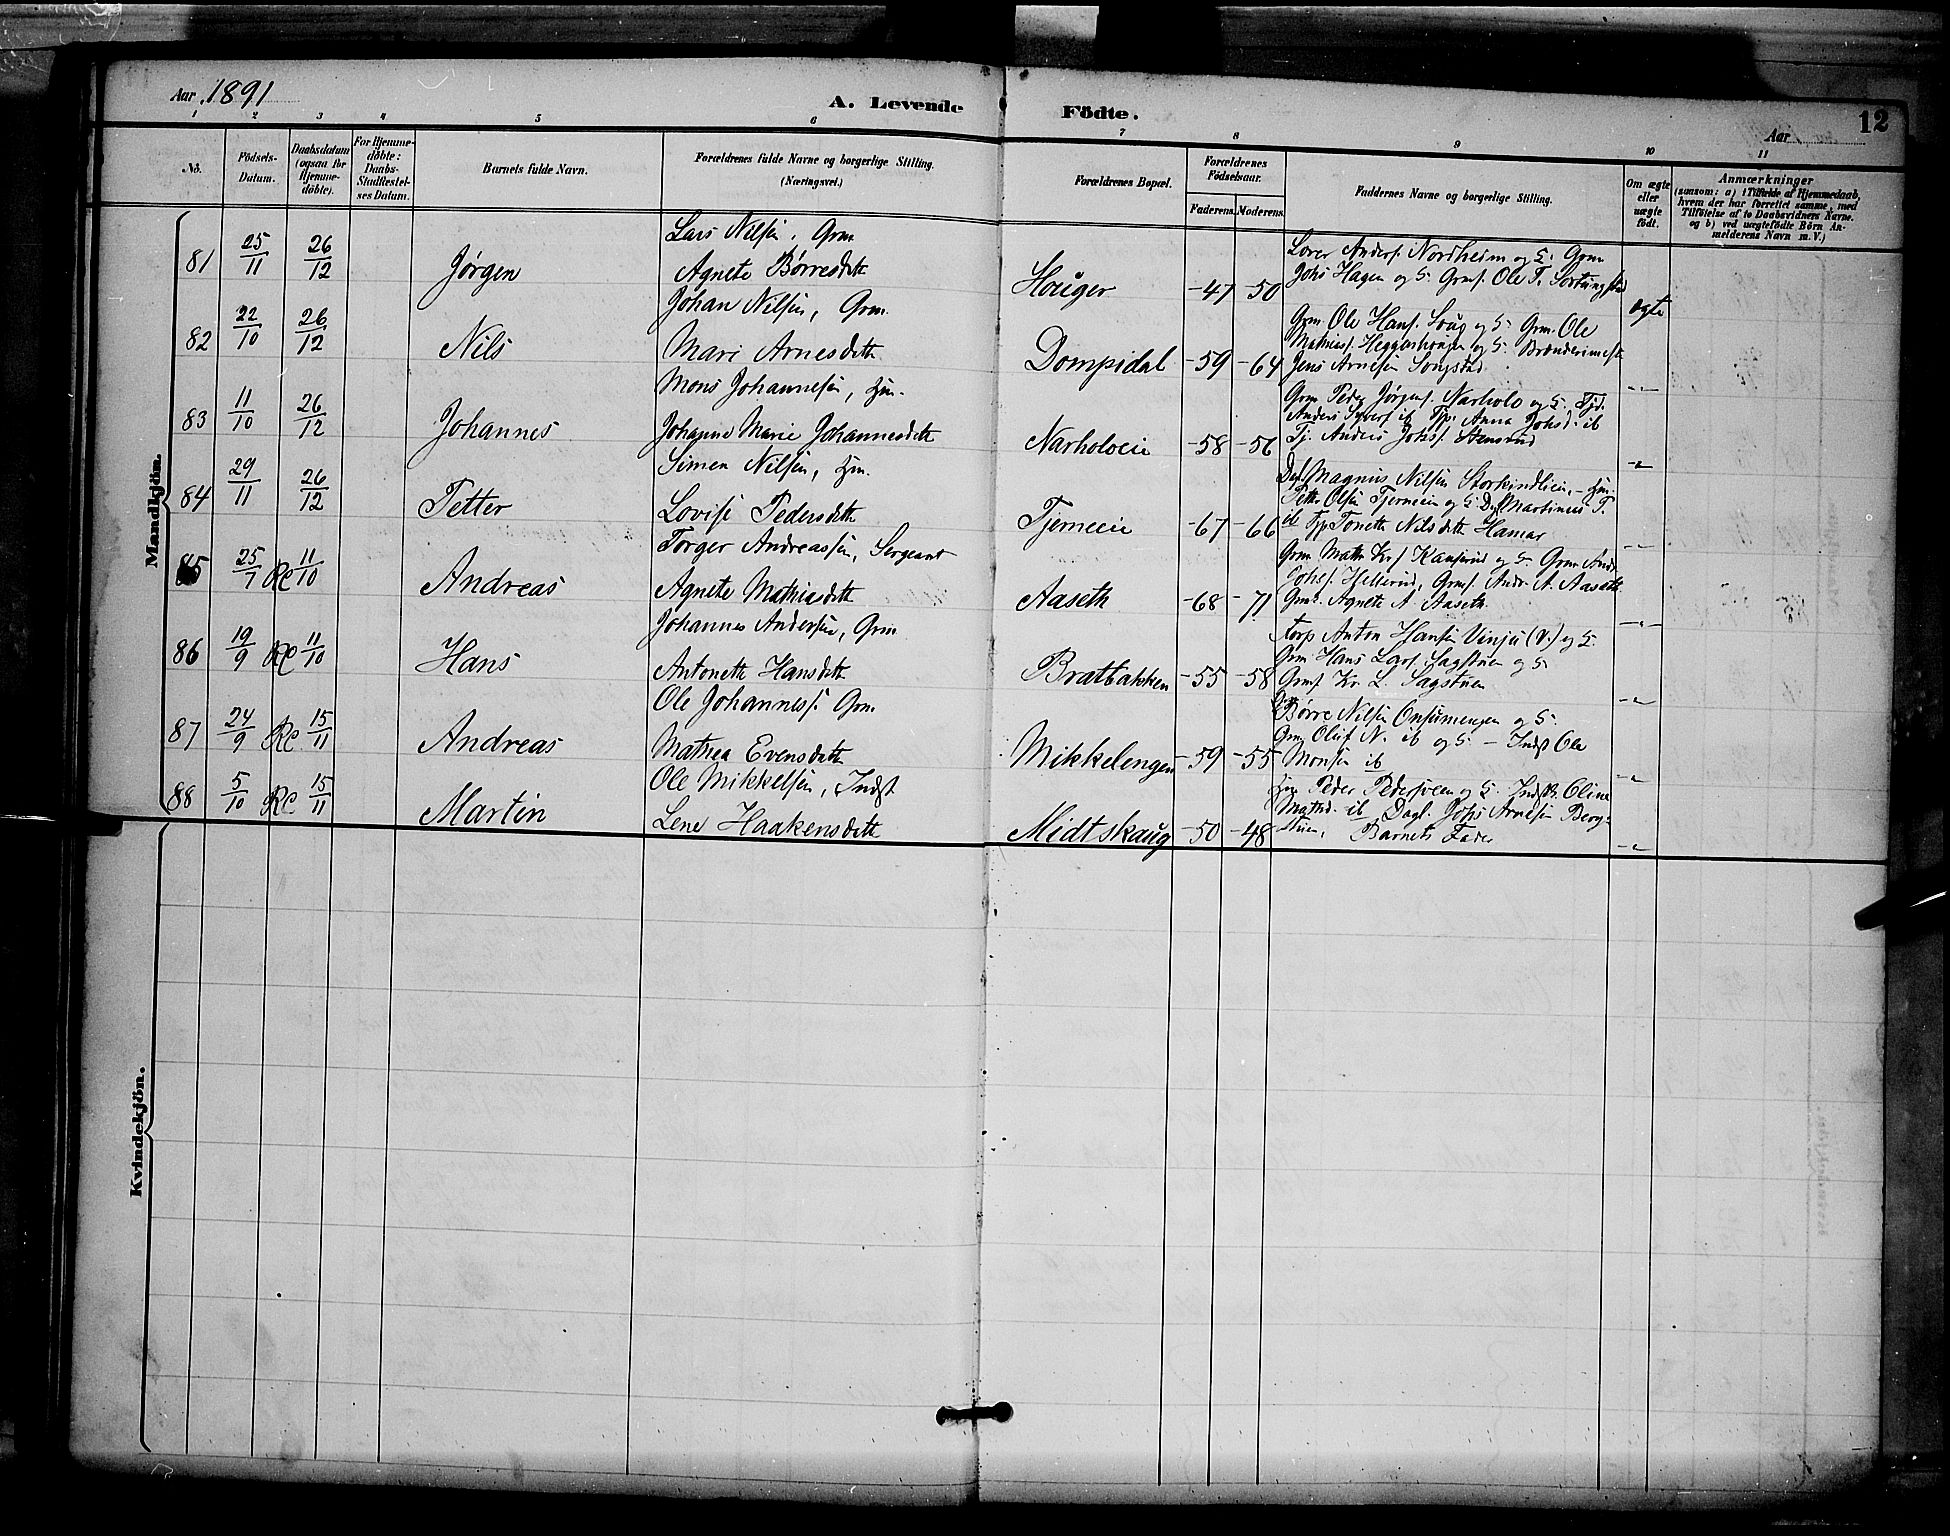 Aar 1891
A. Levende Födte.
Aar
12
1 2 3 4 5 6 7 8 9 10 11
No.
Födsels-Datum.
Daabsdatum (ogsaa for Hjemmedöbte).
For Hjemmedöbte: Daabs-Stadfestelses Datum.
Barnets fulde Navn.
Forældrenes fulde Navne og borgerlige Stilling. (Næringsvei.)
Forældrenes Bopæl.
Forældrenes Födselsaar.
Faderens. Moderens.
Faddernes Navne og borgerlige Stilling.
Om ægte eller uægte födt.
Anmærkninger
(saasom: a) i Tilfælde af Hjemmedaab, hvem der har forrettet samme, med Tilföielse af to Daabsvidners Navne. og b) ved uægtefödte Börn Anmelderens Navn m. V.)
Mandkjön.
81 25/11 26/12 Jørgen
Lars Nilsen, Grm.
Agnete Børresdtt
Houger -47 -50
Lover Anders. Nordheim og H. Grm
Johs Hagen og H. Grms. Ole T.
ægte
82 22/10 26/12 Nils
Johan Nilsen, Grm.
Mari Arnesdtt
Dompidal -59 -64
Grm Ole Hans. og H. Grm. Ole
Mathias. og H.
Jens Arnesen Songstad
-"-
83 11/10 26/12 Johannes
Mons Johannesen, Hm.
Johanne Marie Johannesdtt
Narholoeie -58 -56
Grm Peder Jørgens. Narholo og H. Tjd.
Anders Syvers. ib Tjp. Anna Johsd. ib
Tj. Anders Johs. Stensrud
-"-
84 29/11 26/12 Petter
Simen Nilsen, Hm.
Lovise Pedersdtt
Tjerneeie -67 -66
Magnus Nilsen Storkindlien, - Hm.
Petter Olsen Tjerneeie og H. Martinus P.
ib Tjp Tonette Nilsdtt Hamar
-"-
85 25/7 Re 11/10 Andreas
Torger Andreassen, Sergeant
Agnete Mathiasdtt
Aaseth -68 -71
Grm Math Kr. og H. Grm Andr
Johs. Hellerud, Grms. Andr. A. Aaseth
Grmd. Agnete A. Aaseth.
-"-
86 19/9 Re 11/10 Hans
Johannes Andersen, Grm
Antonette Hansdtt
Bratbakken -55 -58
Korp Anton Hansen Vinju (V.) og H.
Grm Hans Lars. Sagstuen og H
Grms. Kr. L. Sagstuen
-"-
87 24/9 Re 15/11 Andreas
Ole Johanness. Grm.
Mathea Evensdtt
Mikkelengen -59 -55
Børre Nilsen og H.
Grm Oluf N. ib og H. - Indst Ole
Monsen ib
-"-
88 5/10 Re 15/11 Martin
Ole Mikkelsen, Indst
Lene Haakensdtt
Midtskaug -50 -48
Hm Peder Pedersveen og H. Indstk. Oline
Mathsd. ib Dagl. Johs Arnesen Berg-
stuen, Barnets Fader
-"-
Kvindekjön.